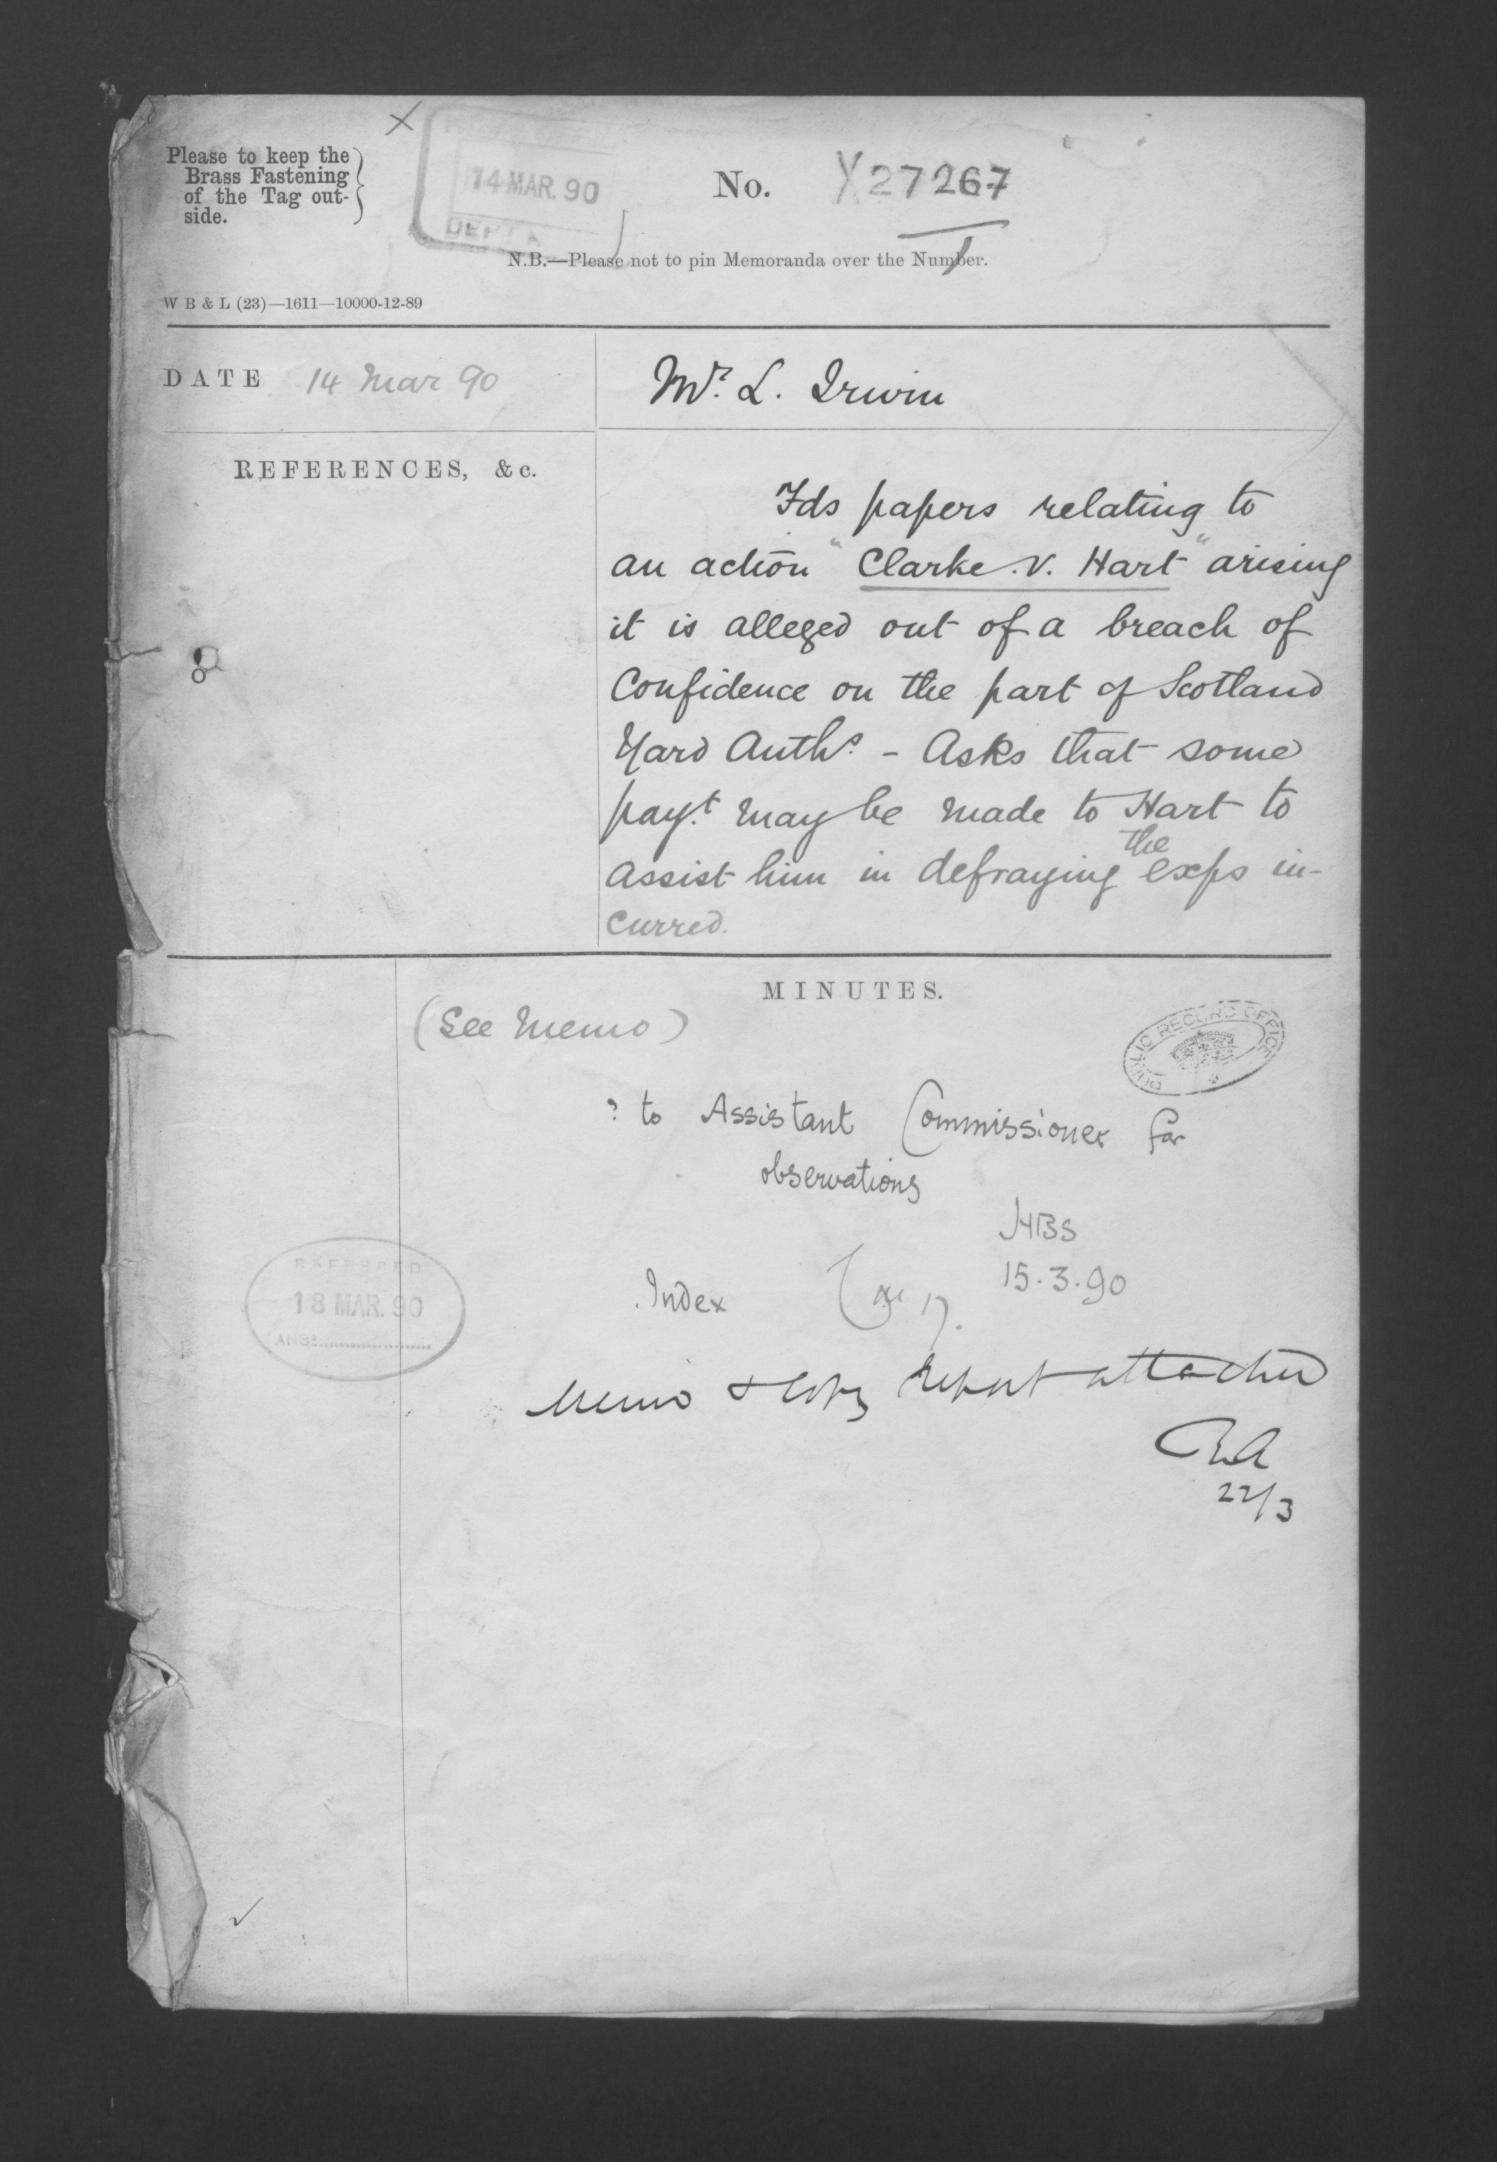 Please to keep the
Brass Fastening
of the Tag out-
side.
X
14 MAR. 90
DEPT
No. X27267
1
N.B.—Please not to pin Memoranda over the Number.
W B & L (23)—1611—10000-12-89
DATE 14 Mar 90
Mr. L. Irwin
REFERENCES, &c.
Fds papers relating to
an action "Clarke v. Hart" arising
it is alleged out of a breach of
Confidence on the part of Scotland
Yard Auths. - Asks that some
payt. may be made to Hart to
assist him in defraying the exps in-
curred.
MINUTES.
(See Memo)
PUBLIC RECORD OFFICE
? to Assistant Commissioner for
observations
HBS
15.3.90
Index
17.
REFERRED
18 MAR. 90
ANSd
Memo & copy Report attached
RA
22/3